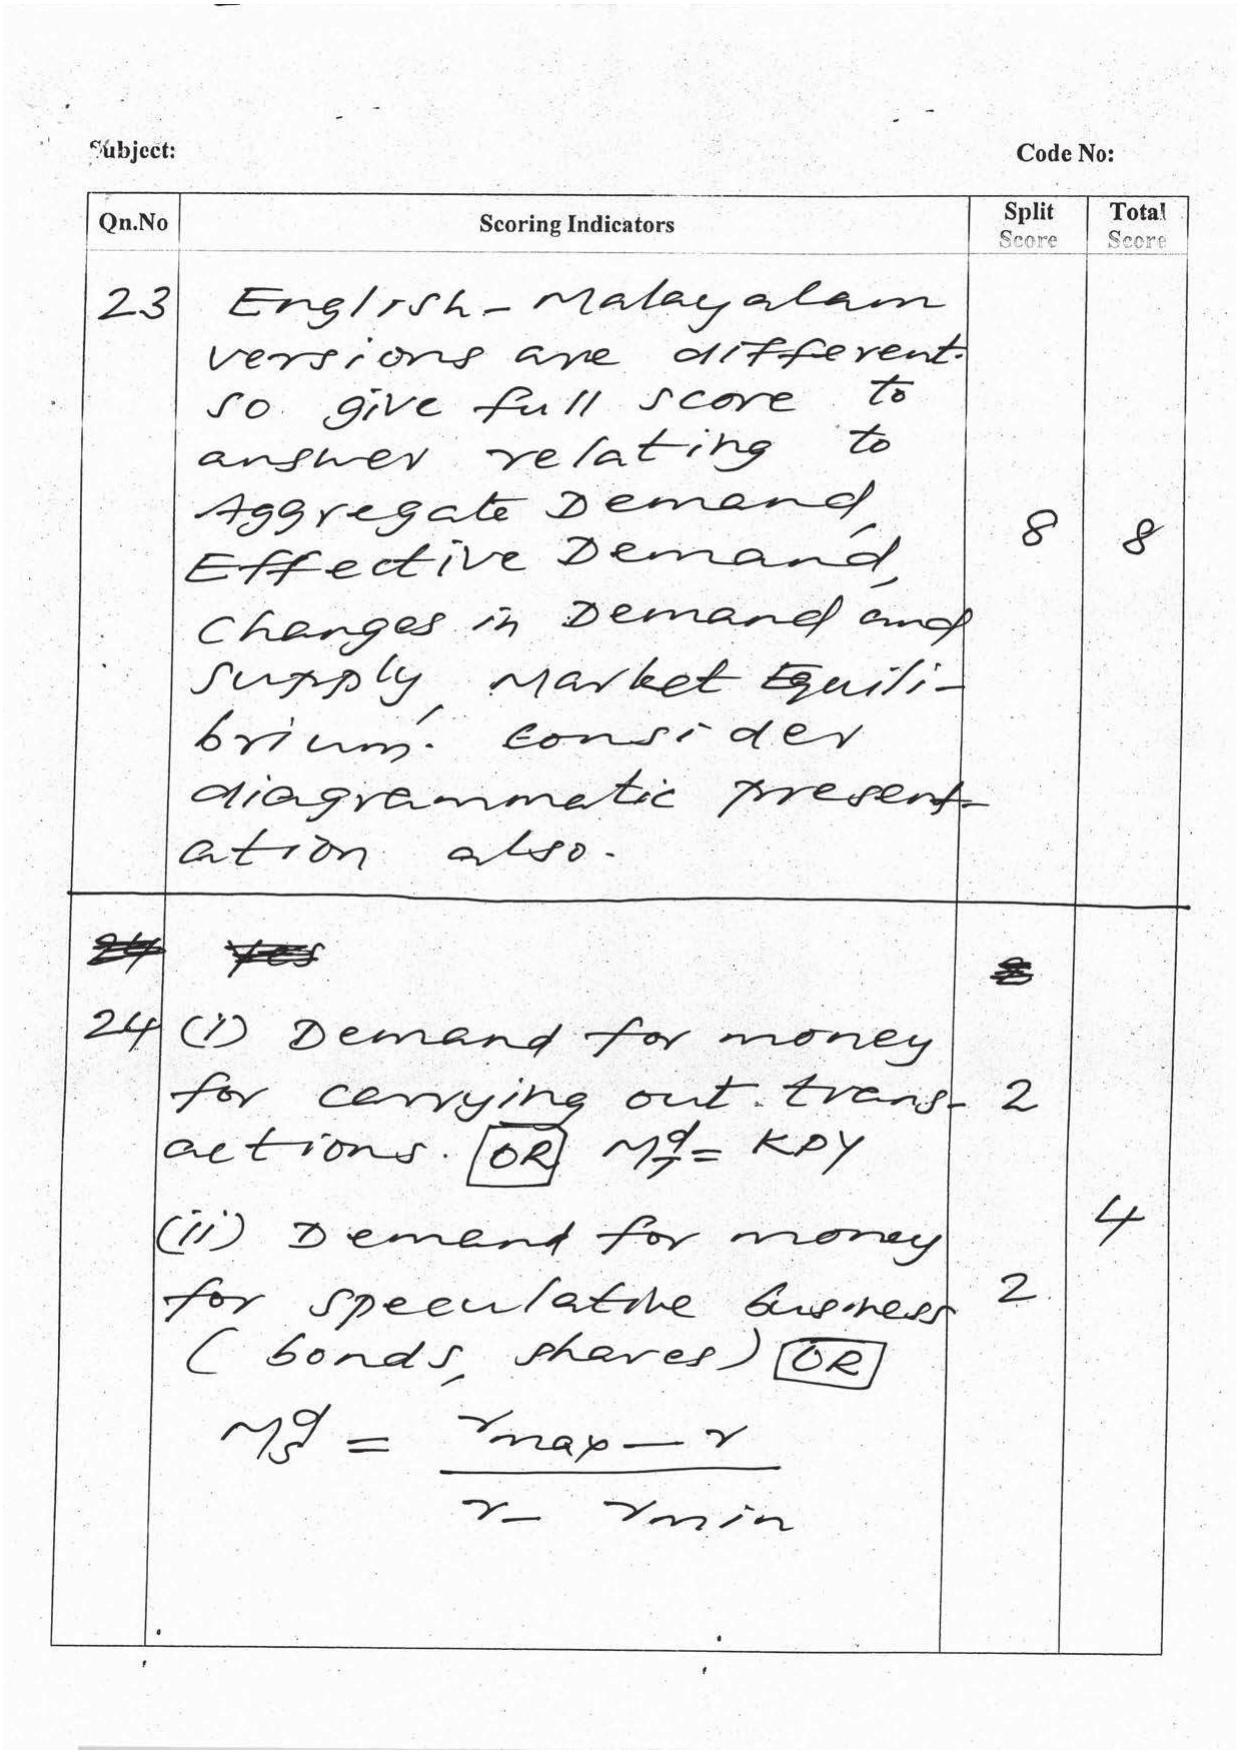 Subject:
Code No:
Qn.No Scoring Indicators Split Score Total Score
23 English - Malayalam
versions are different.
so give full score to
answer relating to
Aggregate Demand,
Effective Demand, 8 8
Changes in Demand and
supply, Market Equili-
brium. Consider
diagrammatic present-
ation also.
24 Yes
24 (i) Demand for money
for carrying out trans- 2
actions. OR M^d_T = KPY
(ii) Demand for money 4
for speculative business 2
( bonds, shares) OR
M^d_S = r max - r
r - r min